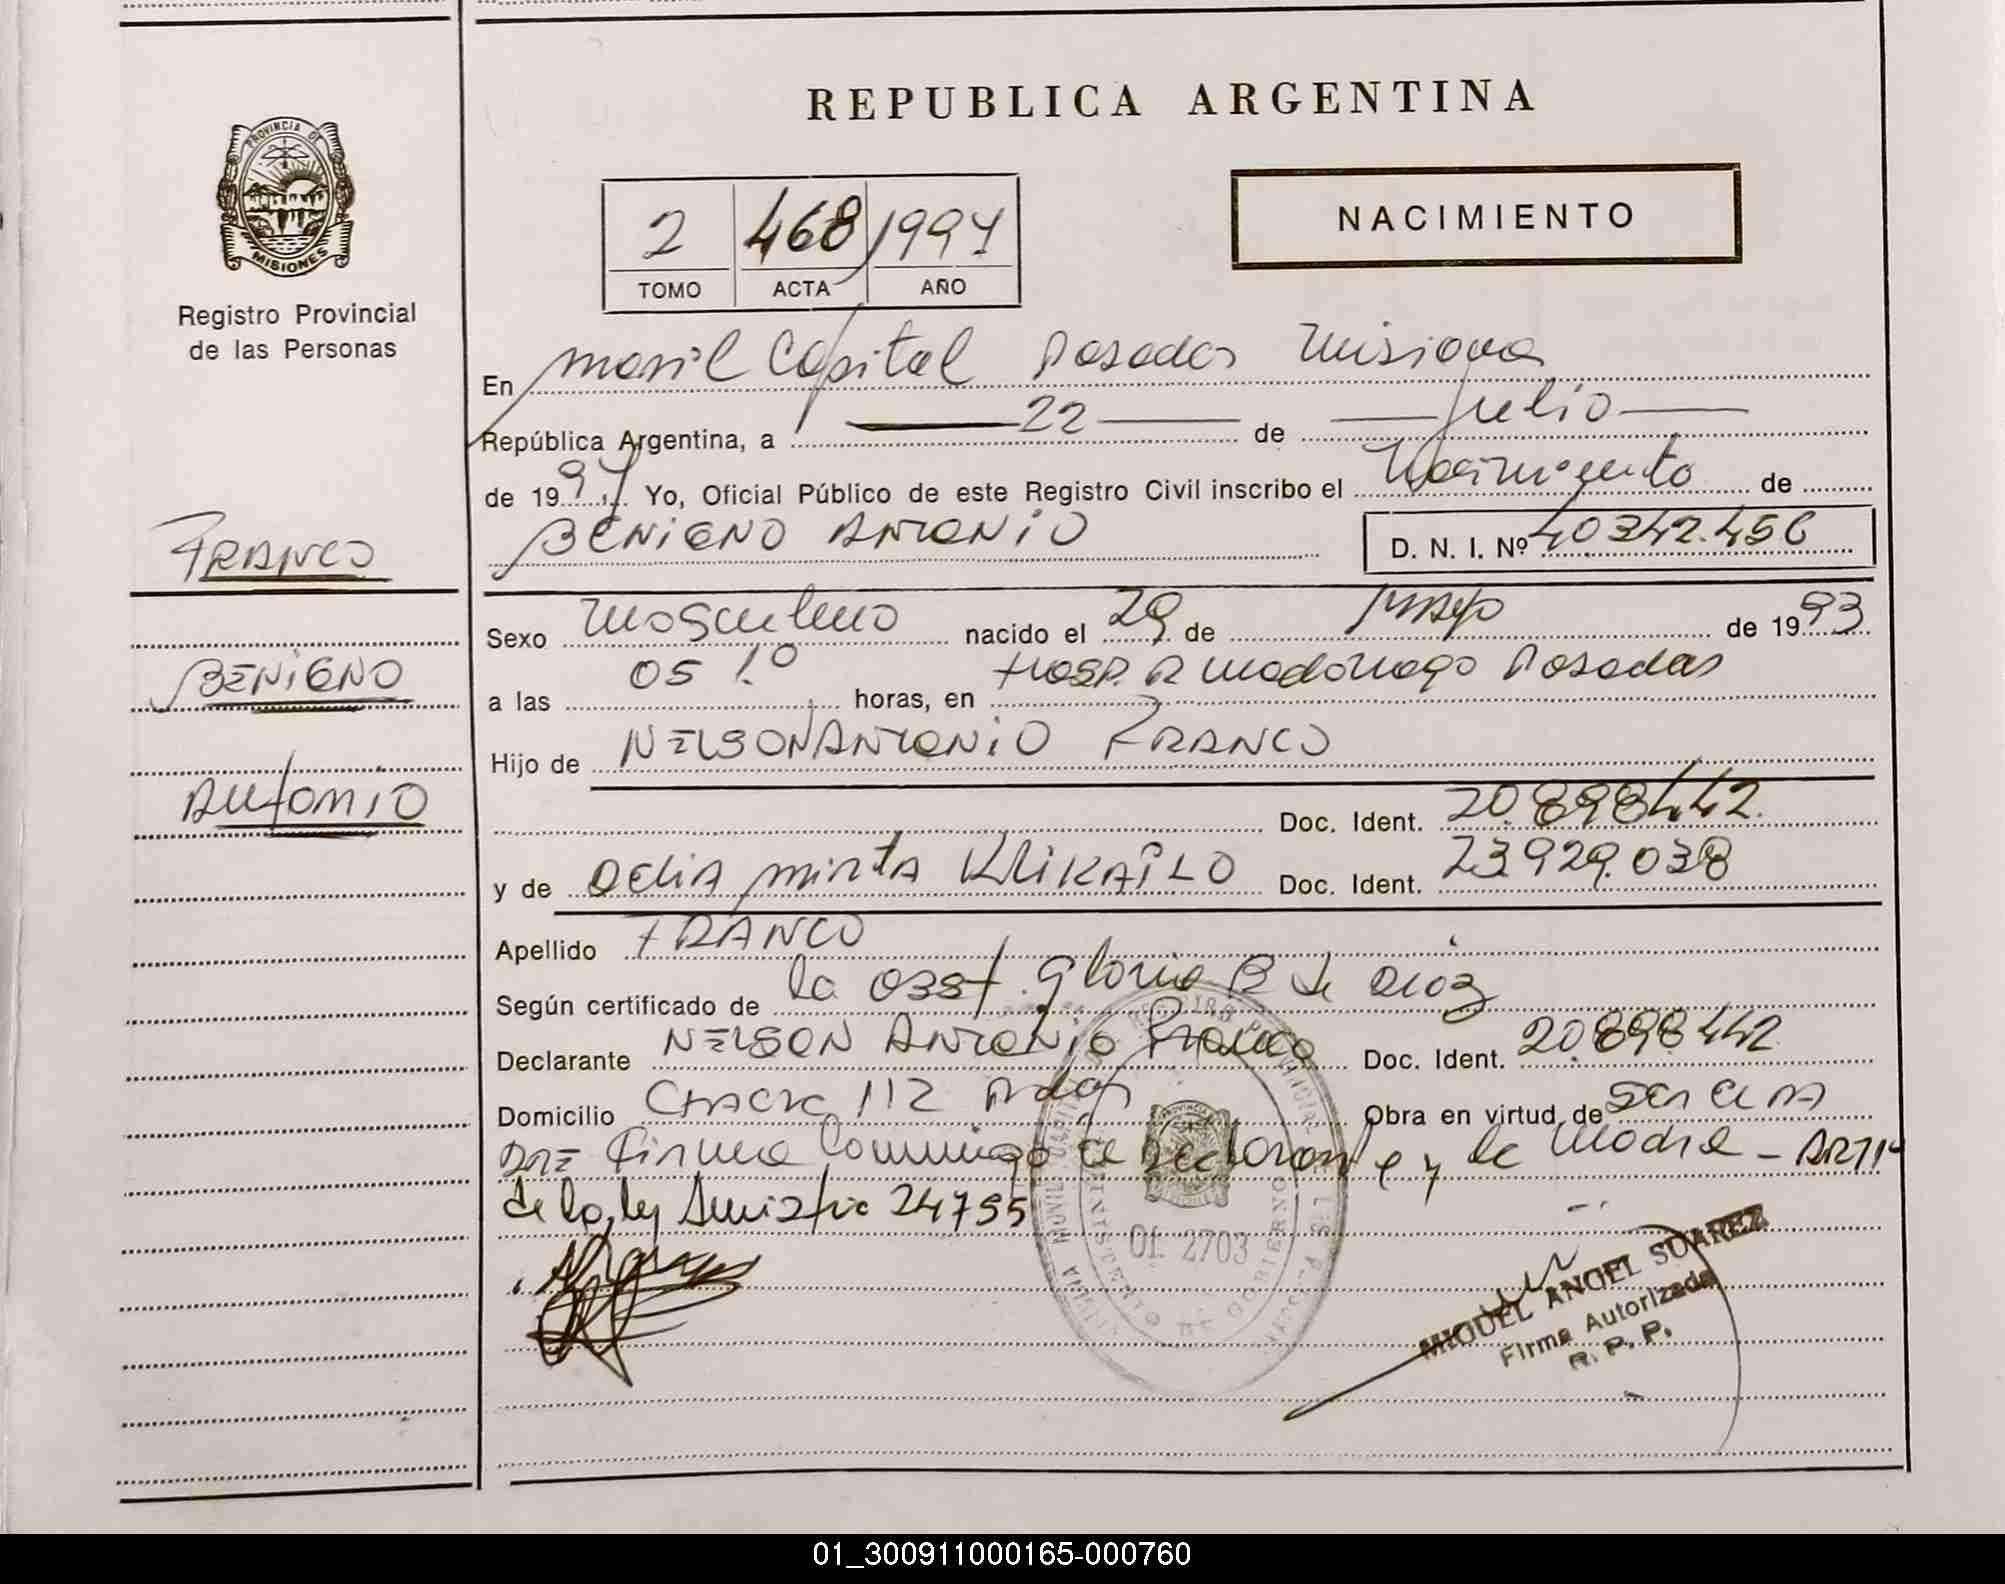 REPUBLICA ARGENTINA
PROVINCIA DE
MISIONES
Registro Provincial
de las Personas
NACIMIENTO
2 468 1997
TOMO ACTA AÑO
En movil Capital Posadas Misiones
República Argentina, a 22 de Julio
de 1997 Yo, Oficial Público de este Registro Civil inscribo el Nacimiento de
BENIGNO ANTONIO D. N. I. Nº 40342.456
FRANCO
BENIGNO
ANTONIO
Sexo Masculino nacido el 29 de Mayo de 1993
a las 05 1.0 horas, en Hosp. R Madariaga Posadas
Hijo de NELSON ANTONIO FRANCO
Doc. Ident. 20.898.442.
y de Delia Mirta Doc. Ident. 23.929.038
Apellido FRANCO
Según certificado de la Obst. Gloria B de Diaz
Declarante NELSON ANTONIO Franco Doc. Ident. 20.898.442
Domicilio Chacra 112 Pdas Obra en virtud de ser el PA
DRE Firma Conmigo el Declarante y la Madre - ART 1º
de la ley Amnistia 24755
01 2703
MINISTERIO DE GOBIERNO
MIGUEL ANGEL SUAREZ
Firma Autorizada
R. P. P.
01_300911000165-000760